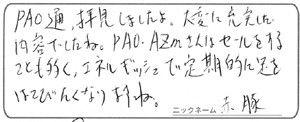 PAO通、拝見しましたよ。大変に充実した
内容でしたね。PAO・AZmさんはセールをする
ことも多く、エネルギッシュで定期的に足を
はこびたくなりますね。
ニックネーム 赤豚